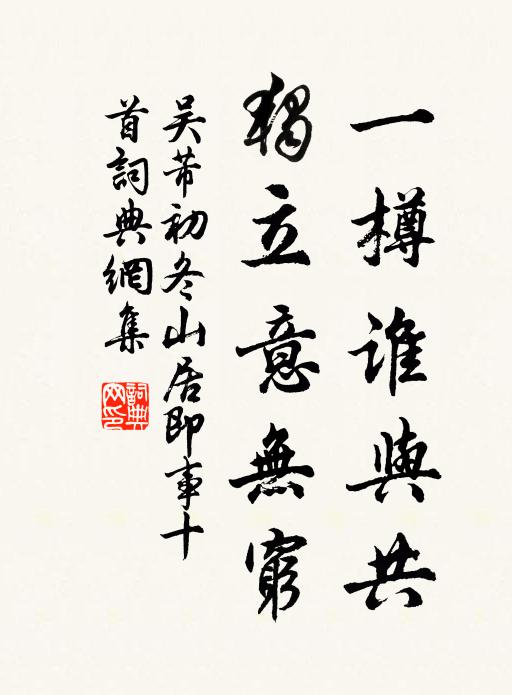 一樽誰與共
獨立意無窮
吴芾初冬山居即事十
首詞典網集
詞典
网印